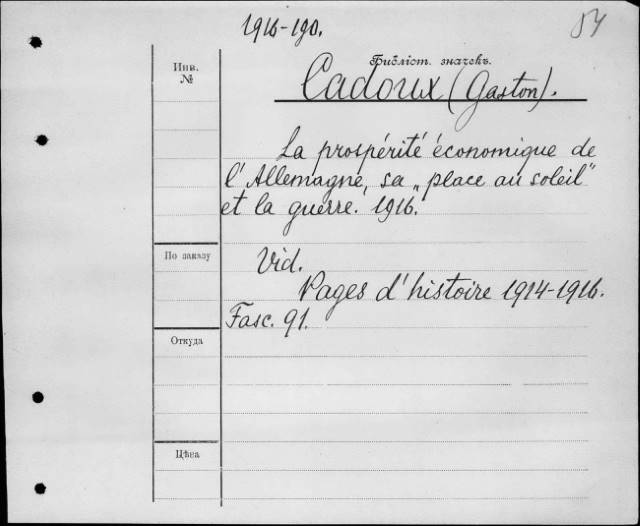 1916-190.
54
Инв.
№
Библіот. значекъ.
Cadoux (Gaston).
La prospérité économique de
l'Allemagne, sa „place au soleil"
et la guerre. 1916.
По заказу
Vid.
Pages d'histoire 1914-1916.
Fasc. 91.
Откуда
Цѣна